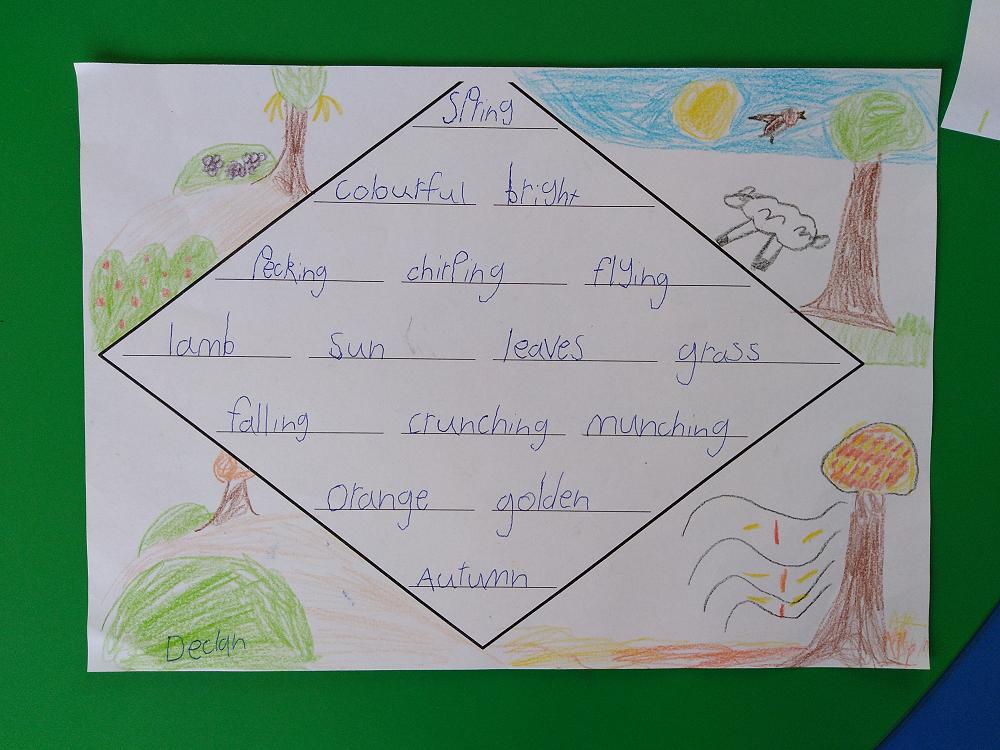 Spring
colourful bright
Pecking chirping flying
lamb sun leaves grass
falling crunching munching
Orange golden
Autumn
Declan